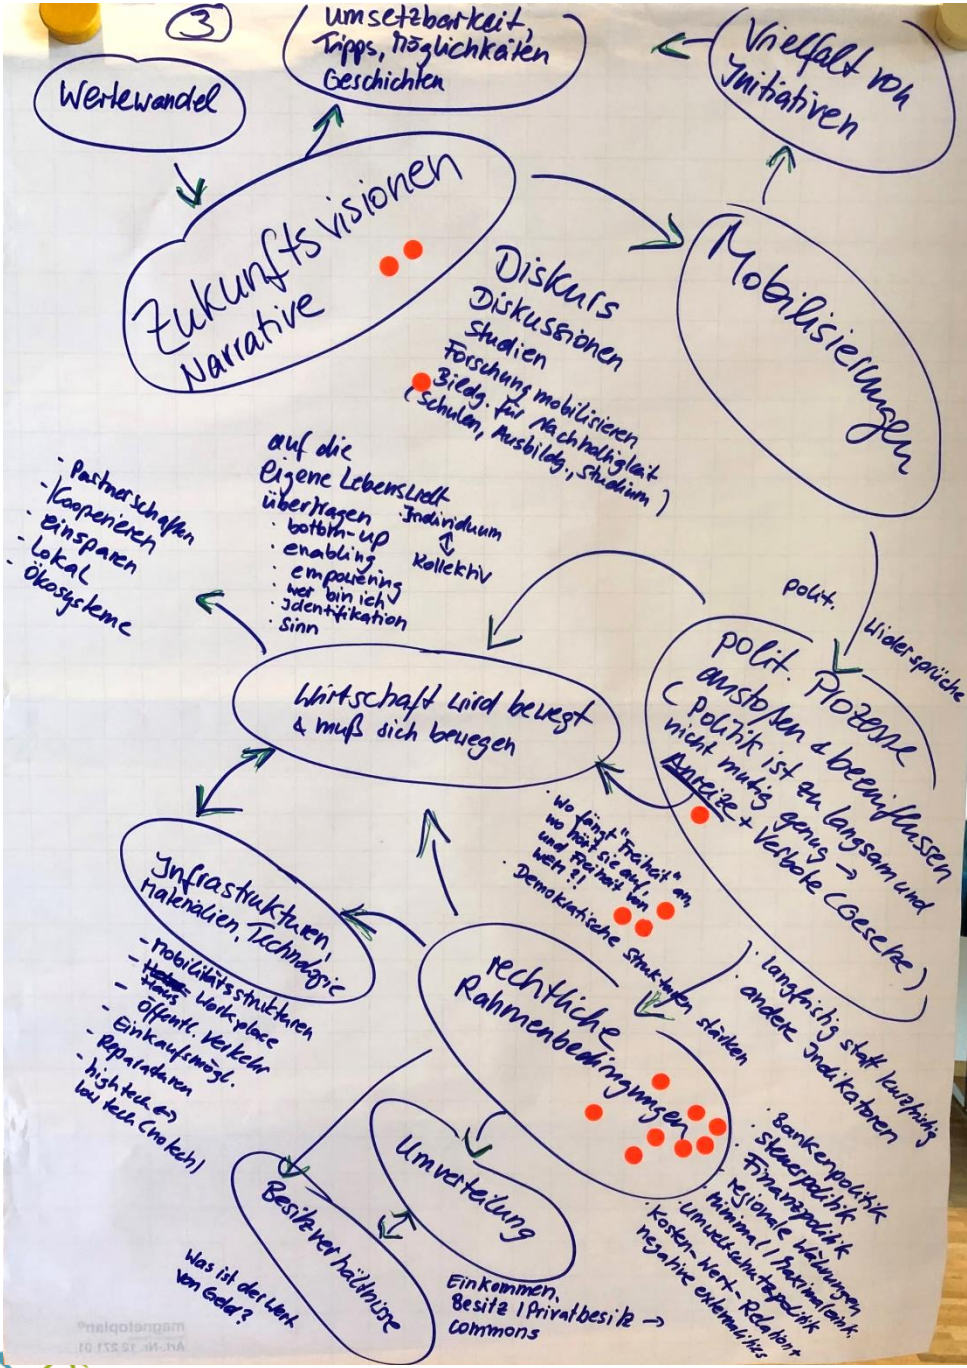 3
Wertewandel
Umsetzbarkeit,
Tipps, Möglichkeiten
Geschichten
Vielfalt von
Initiativen
Zukunftsvisionen
Narrative
Mobilisierungen
Diskurs
Diskussionen
Studien
Forschung mobilisieren
Bildg. für Nachhaltigkeit
(Schulen, Ausbildg., Studium)
auf die
eigene Lebenswelt
übertragen
· bottom-up
· enabling
· empowering
· wer bin ich
· Identifikation
· Sinn
· Individuum
↕
Kollektiv
· Partnerschaften
- Kooperieren
· einsparen
- Lokal
· Ökosysteme
polit.
Widersprüche
polit. Prozesse
anstoßen & beeinflussen
(Politik ist zu langsam und
nicht mutig genug →
Anreize + Verbote (Gesetze)
Wirtschaft wird bewegt
& muß sich bewegen
· Wo fängt "Freiheit" an,
wo hört sie auf.
und Freiheit von
wem?!
· Demokratische Strukturen stärken
· langfristig statt kurzfristig
· andere Indikatoren
Infrastrukturen,
Materialien, Technologie
- Mobilitätsstrukturen
- Haus Workplace
- Öffentl. Verkehr
- Einkaufsmögl.
- Reparaturen
- high tech ↔
low tech (no tech)
rechtliche
Rahmenbedingungen
· Bankenpolitik
· Steuerpolitik
· Finanzpolitik
· regionale Währungen
· minimal / Maximaleink.
· Umweltschutzpolitik
· Kosten-Wert-Relation +
negative externalities
Umverteilung
Besitzverhältnisse
Was ist der Wert
von Geld?
Einkommen,
Besitz / Privatbesitz →
commons
magnetoplan®
Art.-Nr. 12 271 01